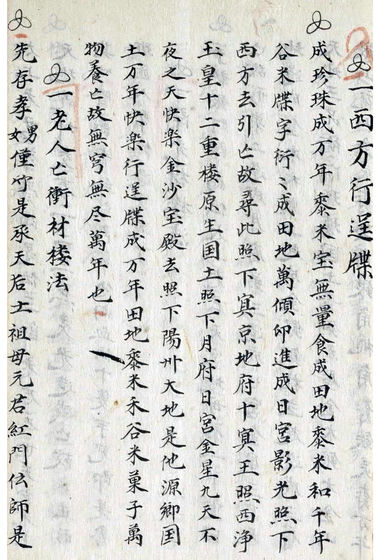 一西方行逞牒
成珍珠成万年黍米宝無量食成田地黍米和千年
谷米牒字衍〻成田地萬傾卯進成日宮影光照下
西方去引亡故尋此照下冥京地府十冥王照西淨
玉皇十二重楼原生国土照下月府日宮金星九天不
夜之天快楽金沙宝殿去照下陽州大地是他源卿国
土万年快楽行逞牒成万年田地黍米禾谷米菓子萬
物養亡故無穷無尽萬年也
一老人亡衝材楼法
先存孝男女僮竹是承天后土祖母元君紅門伝師是